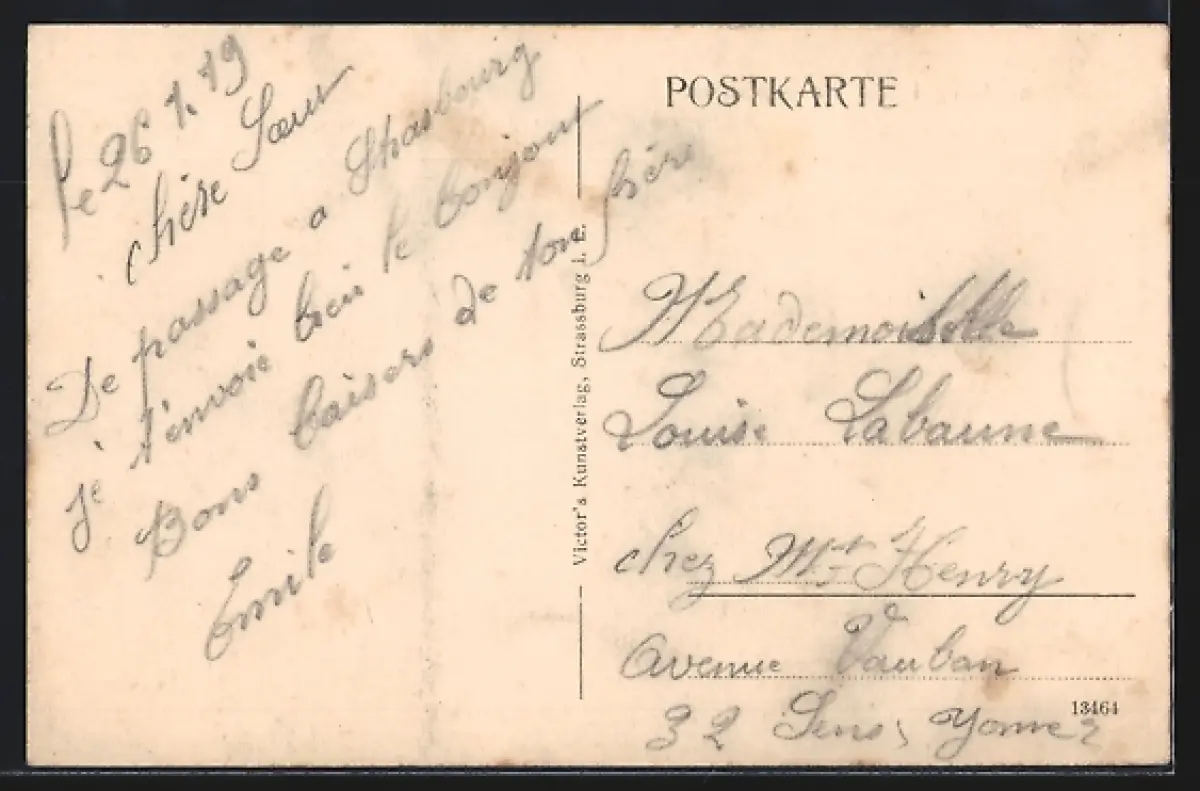 le 26 1.19
chère Sœur
De passage a Strasbourg
je t'envoie bien le bonjour
Bons baisers de ton frère
Emile
POSTKARTE
Victor's Kunstverlag, Strassburg i. E.
Mademoiselle
Louise Labaune
chez Mr Henry
avenue Vauban
32 Sens, Yonne
13464